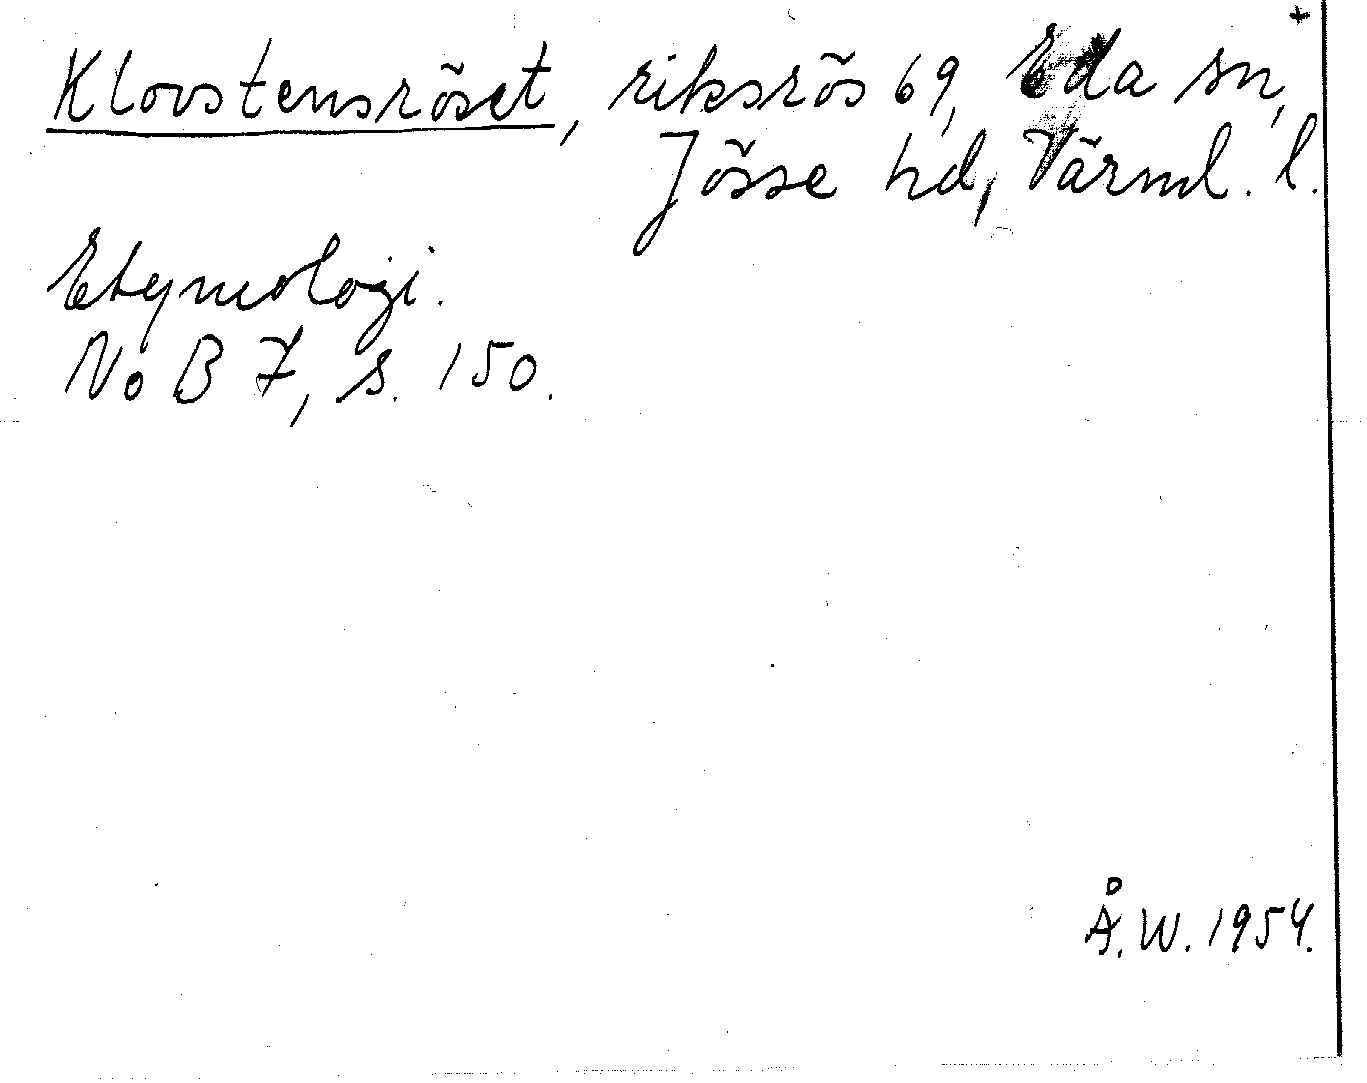 +
Klovstensröset, riksrös 69, Eda sn,
Jösse hd, Värml. l.
Etymologi.
NoB 7, s. 150.
Å.W. 1954.